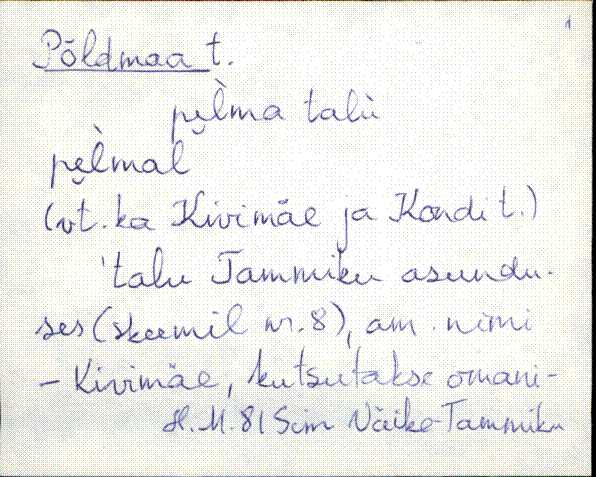 1
Põldmaa t.
pe̮l̀ma talù
pe̮l̀mal
(vt. ka Kivimäe ja Kondi t.)
'talu Tammiku asundu-
ses (skeemil nr. 8), am. nimi
- Kivimäe, kutsutakse omani-
H.M. 81 Sim Väike-Tammiku